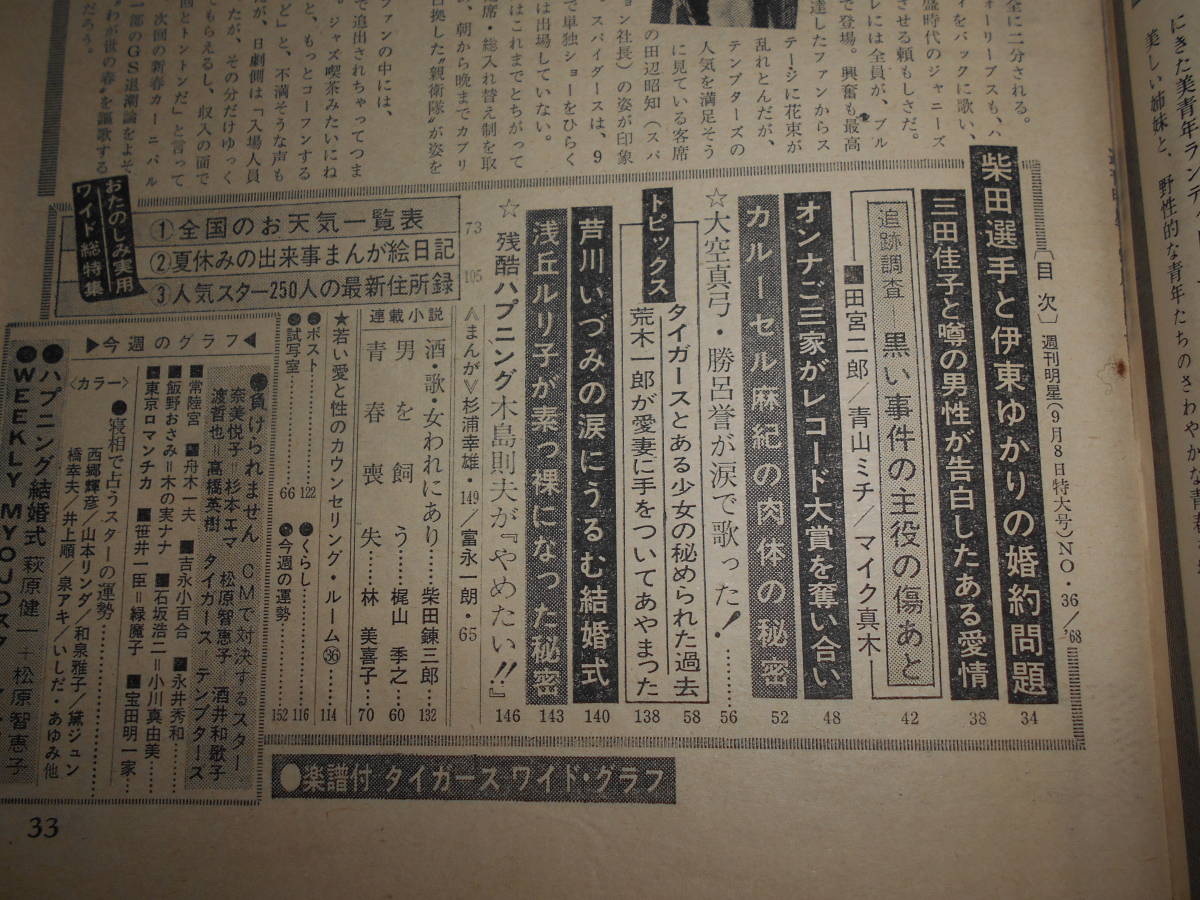 全に二分される。
ォーリーブスも、ハ
ィをバックに歌い、
盛時代のジャニーズ
させる頼もしさだ。
レには全員が、ブル
で登場。興奮も最高
達したファンからス
テージに花束が
乱れとんだが、
テンプターズの
人気を満足そう
に見ている客席
の田辺昭知（スパ
ョン社長）の姿が印象
スパイダースは、９
で単独ショーをひらく
は出場していない。
はこれまでとちがって
席・総入れ替え制を取
朝から晩までカブリ
占拠した〝親衛隊〟が姿を
ファンの中には、
で追出されちゃってつま
。ジャズ喫茶みたいにね
と、もっとコーフンする
ど」と、不満そうな声も
が、日劇側は「入場人員
たが、その分だけゆっく
てもらえるし、収入の面で
回とトントンだ」と言って
次回の新春カーニバル
一部のＧＳ退潮論をよそ
わが世の春〟を謳歌する
だろう。
にきた美青年ランデ
美しい姉妹と、野性的な青年たちのさわやかな青春
〔目 次〕週刊明星（９月８日特大号）ＮＯ・36／'68
柴田選手と伊東ゆかりの婚約問題 34
三田佳子と噂の男性が告白したある愛情 38
追跡調査―黒い事件の主役の傷あと 42
■田宮二郎／青山ミチ／マイク真木
オンナご三家がレコード大賞を奪い合い 48
カルーセル麻紀の肉体の秘密 52
☆大空真弓・勝呂誉が涙で歌った！…… 56
トピックス
タイガースとある少女の秘められた過去 58
荒木一郎が愛妻に手をついてあやまった 138
芦川いづみの涙にうるむ結婚式 140
浅丘ルリ子が素っ裸になった秘密 143
☆ 残酷ハプニング木島則夫が『やめたい!!』 146
〈まんが〉杉浦幸雄・149／富永一朗・65
連載小説
酒・歌・女われにあり……柴田錬三郎 132
男を飼う……梶山季之 60
青春喪失……林美喜子 70
★若い愛と性のカウンセリング・ルーム㊱ 114
●ポスト…… 122
●くらし…… 116
●試写室…… 66
●今週の運勢…… 152
おたのしみ実用
ワイド総特集
①全国のお天気一覧表 73
②夏休みの出来事まんが絵日記
③人気スター250人の最新住所録 105
▶今週のグラフ◀
●負けられません ＣＭで対決するスター
奈美悦子＝杉本エマ 松原智恵子＝酒井和歌子
渡哲也＝高橋英樹 タイガース＝テンプターズ
■常陸宮 ■舟木一夫 ■吉永小百合 ■永井秀和……
■飯野おさみ＝木の実ナナ ■石坂浩二＝小川真由美……
■東京ロマンチカ ■笹井一臣＝緑魔子 ■宝田明一家……
〈カラー〉
●寝相で占うスターの運勢……
西郷輝彦／山本リンダ／和泉雅子／黛ジュン
橋幸夫／井上順／泉アキ／いしだ・あゆみ他
●ハプニング結婚式 萩原健一＋松原智恵子
●ＷＥＥＫＬＹ ＭＹＯＪＯ
●楽譜付 タイガース ワイド・グラフ
33